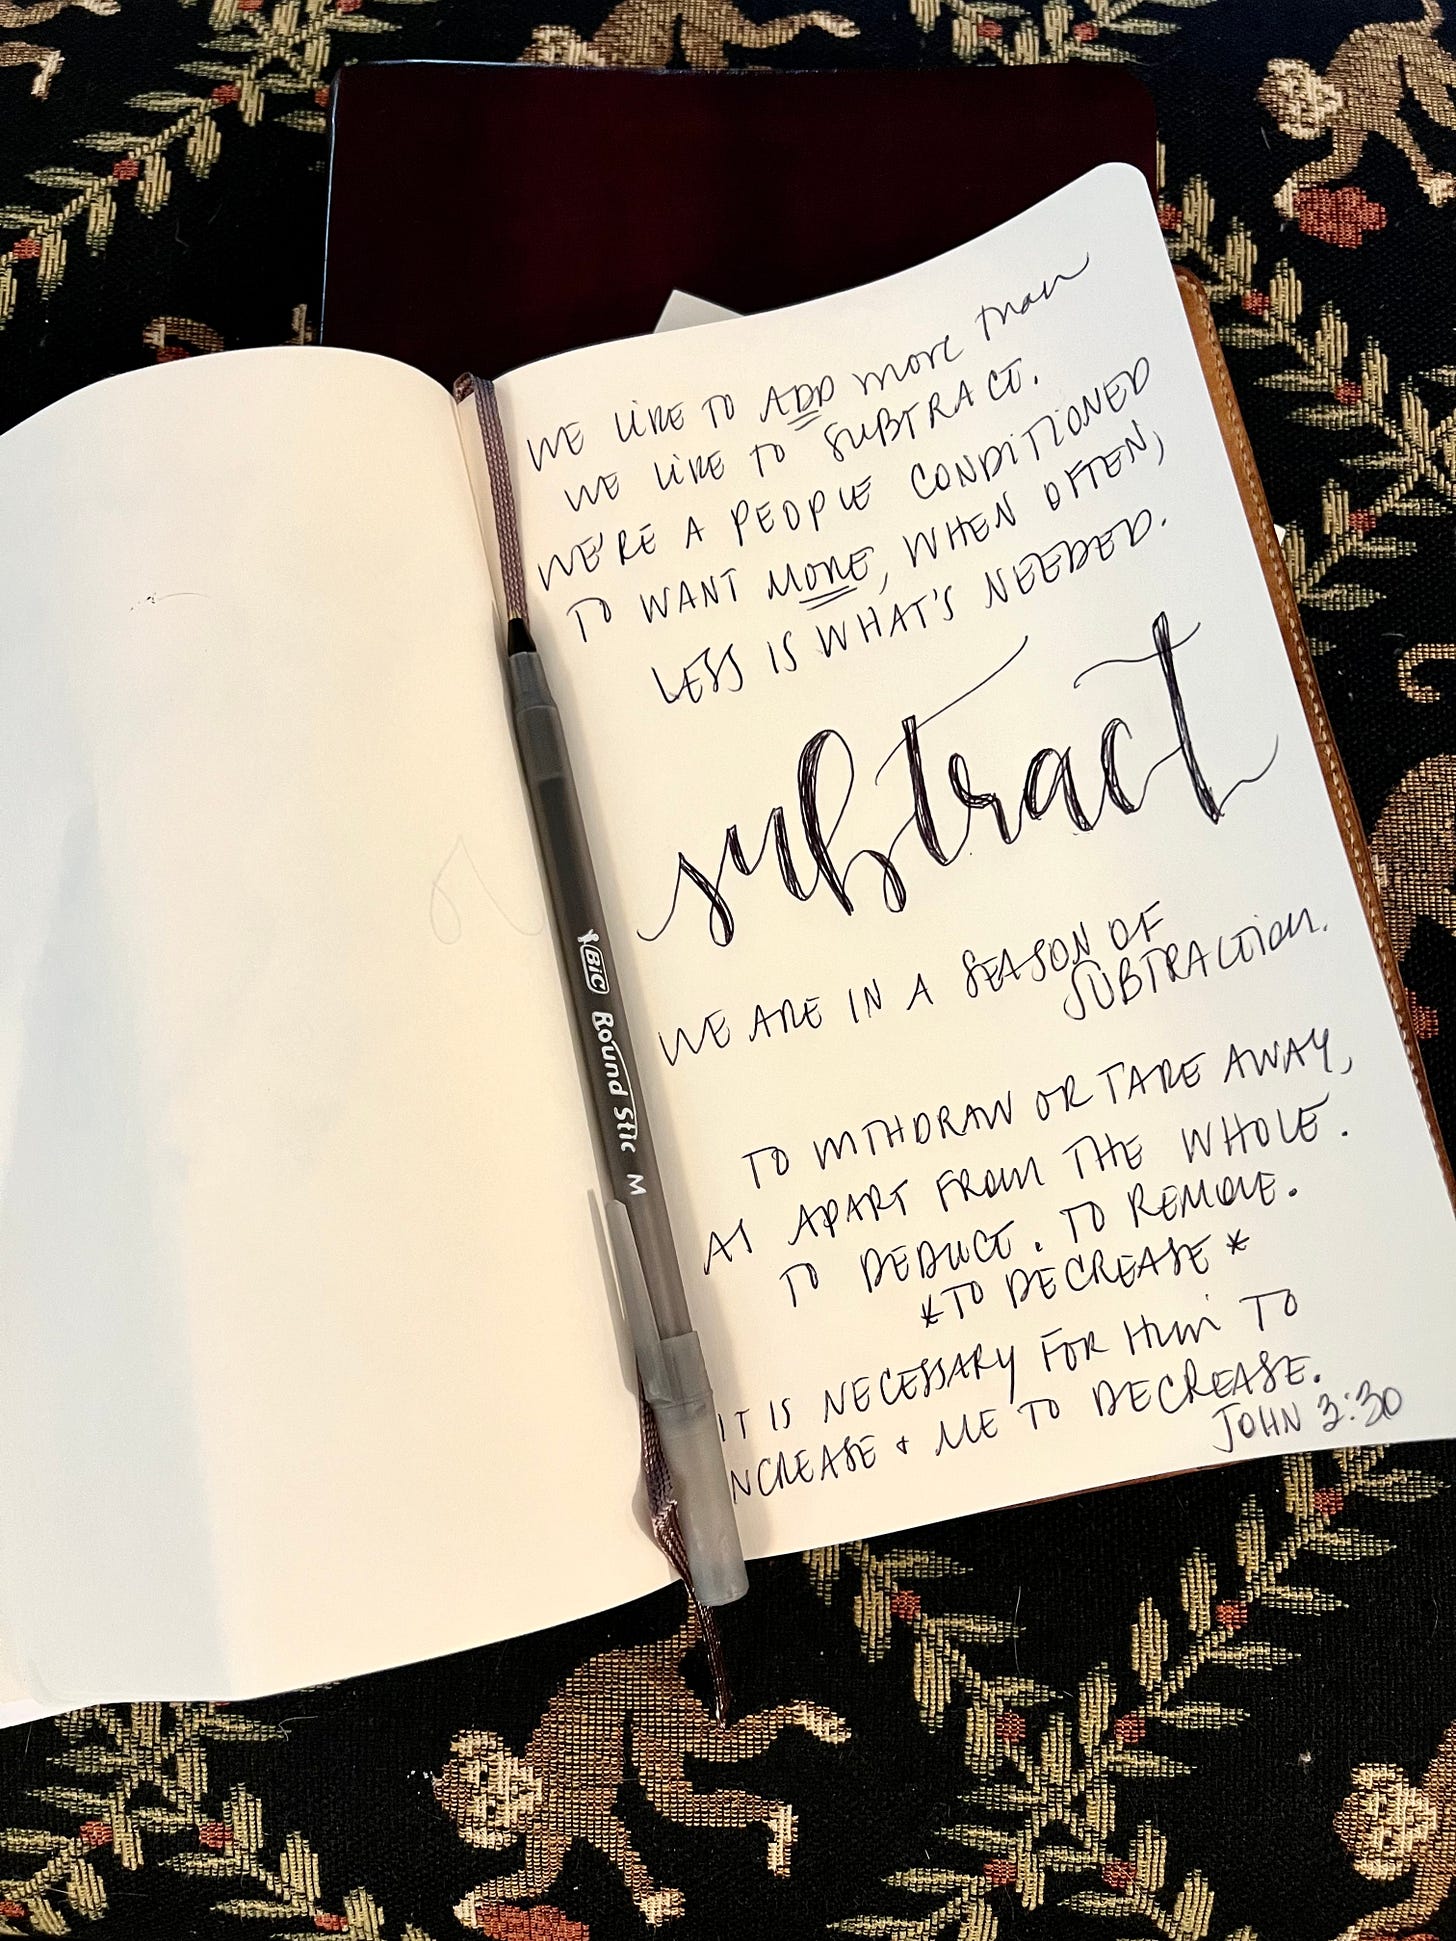 WE LIKE TO ADD more than
WE LIKE TO SUBTRACT.
WE'RE A PEOPLE CONDITIONED
TO WANT MORE, WHEN OFTEN,
LESS IS WHAT'S NEEDED.
subtract
WE ARE IN A SEASON OF
SUBTRACTION.
TO WITHDRAW OR TAKE AWAY,
AS APART FROM THE WHOLE.
TO DEDUCT. TO REMOVE.
*TO DECREASE*
IT IS NECESSARY FOR HIM TO
INCREASE + ME TO DECREASE.
JOHN 3:30
BIC Round Stic M